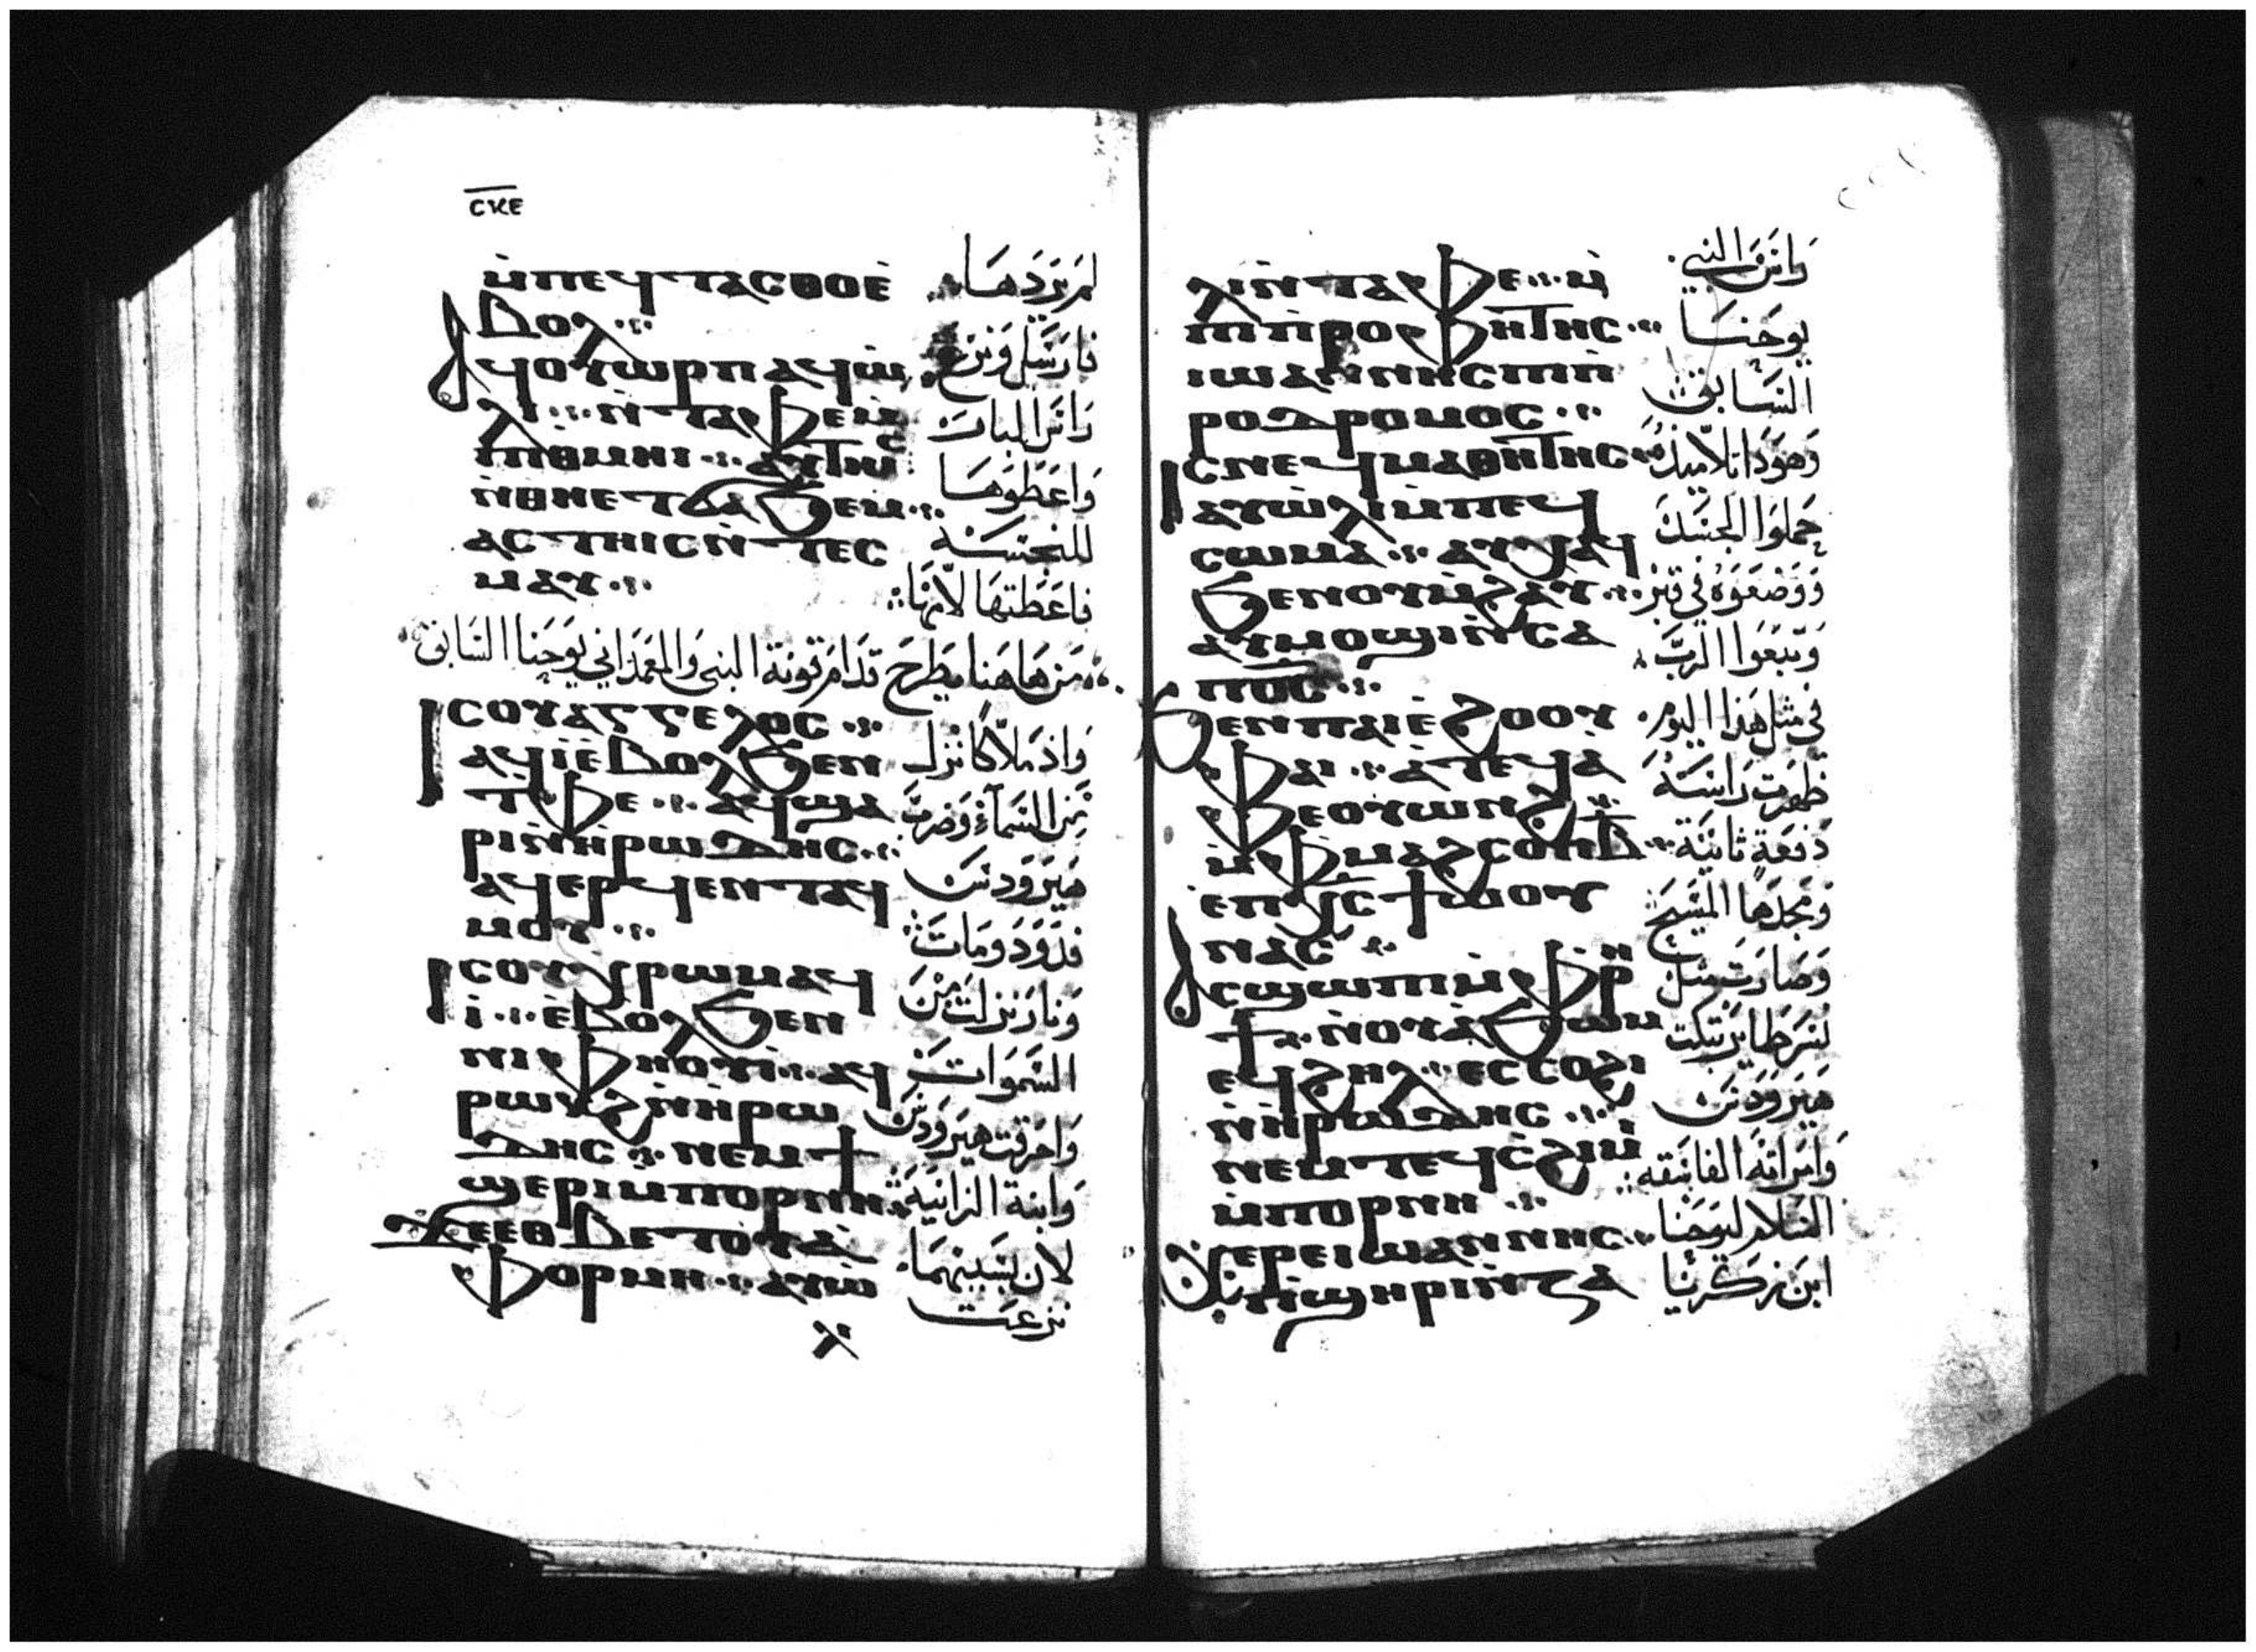 ⲥⲕⲉ
ⲙ̀ⲡⲉϥⲧⲁⲥⲑⲟⲉ̀
ⲃⲟⲗ
ⲁϥⲟⲩⲱⲣⲡ ⲁϥⲱ̀
ⲗⲓ ⲛ̀ⲧⲁⲫⲉ ⲙ̀
ⲡⲑⲙⲏⲓ ⲁⲩⲧⲏⲓⲥ
ⲛ̀ⲑⲛⲉⲧϭⲁϧⲉⲙ
ⲁⲥⲧⲏⲓⲥ ⲛ̀ⲧⲉⲥ
ⲙⲁⲩ
لم يردها
فارسل ونزع
راس البار
واعطوها
للنجسة
فاعطتها لامها
من هاهنا يطرح قدام قونة النبي والمعمداني يوحنا السابق
ⲓⲥ ⲟⲩⲁⲅⲅⲉⲗⲟⲥ
ⲁϥⲓ̀ ⲉ̀ⲃⲟⲗϧⲉⲛ
ⲧⲫⲉ ⲁϥϣⲁ
ⲣⲓ ⲛ̀ⲏⲣⲱⲇⲏⲥ
ⲁϥⲉⲣϥⲉⲛⲧ ⲁϥ
ⲙⲟⲩ
ⲓⲥ ⲟⲩⲭⲣⲱⲙ ⲁϥ
ⲓ̀ ⲉ̀ⲃⲟⲗϧⲉⲛ
ⲛⲓⲫⲏⲟⲩⲓ̀ ⲁϥ
ⲣⲱⲕϩ ⲛ̀ⲏⲣⲱ
ⲇⲏⲥ ⲛⲉⲙ ϯ
ϣⲉⲣⲓ ⲙ̀ⲡⲟⲣⲛⲏ
ϫⲉ ⲉⲑⲃⲉⲧⲟⲩⲁ̀
ⲫⲟⲣⲙⲏ ⲁⲩⲱ̀
ⲗ
واذ ملاكا نزل
من السماء وضرب
هيرودس
فدود ومات
ونار نزلت من
السموات
واحرقت هيرودس
وابنة الزانية
لان بسببهما
نزعت
ⲗⲓ ⲛ̀ⲧⲁⲫⲉ ⲙ̀
ⲡⲓⲡⲣⲟⲫⲏⲧⲏⲥ
ⲓⲱⲁⲛⲛⲏⲥ ⲡⲓⲡ
ⲣⲟⲇⲣⲟⲙⲟⲥ
ⲓⲥ ⲛⲉϥⲙⲁⲑⲏⲧⲏⲥ
ⲁⲩⲱ̀ⲗⲓ ⲙ̀ⲡⲉϥ
ⲥⲱⲙⲁ ⲁⲩⲭⲁϥ
ϧⲉⲛ ⲟⲩⲙ̀ϩⲁⲩ
ⲁⲩⲙⲟϣⲓ ⲛ̀ⲥⲁ
ⲡϭⲥ
ϧⲉⲛ ⲡⲁⲓⲉ̀ϩⲟⲟⲩ
ⲫⲁⲓ ⲁ̀ⲧⲉϥⲁ̀
ⲫⲉ ⲟⲩⲱⲛϩ
ⲙ̀ⲫⲙⲁϩⲥⲟⲡ ⲃ̅
ⲉ̀ⲡⲭⲥ ϯⲱⲟⲩ
ⲛⲁⲥ
ⲁⲥϣⲱⲡⲓ ⲙ̀ⲫⲣⲏ
ϯ ⲛ̀ⲟⲩⲁ̀ϧⲱⲙ
ⲉϥϩⲏⲗ ⲉⲥⲥⲟϩⲓ
ⲛ̀ⲏⲣⲱⲇⲏⲥ
ⲛⲉⲙ ⲧⲉϥⲥ̀ϩⲓⲙⲓ
ⲙ̀ⲡⲟⲣⲛⲏ
ⲭⲉⲣⲉ ⲓⲱⲁⲛⲛⲏⲥ
ⲡϣⲏⲣⲓ ⲛ̀ⲍⲁ
راس النبي
يوحنا
السابق
وهودا تلاميذه
حملوا الجسد
ووضعوه في قبر
وتبعوا الرب
في مثل هذا اليوم
ظهرت راسه
دفعة ثانية
ومجدها المسيح
وصارت مثل
نسر طاير تبكت
هيرودس
وامراته الفاسقه
السلام ليوحنا
ابن زكريا